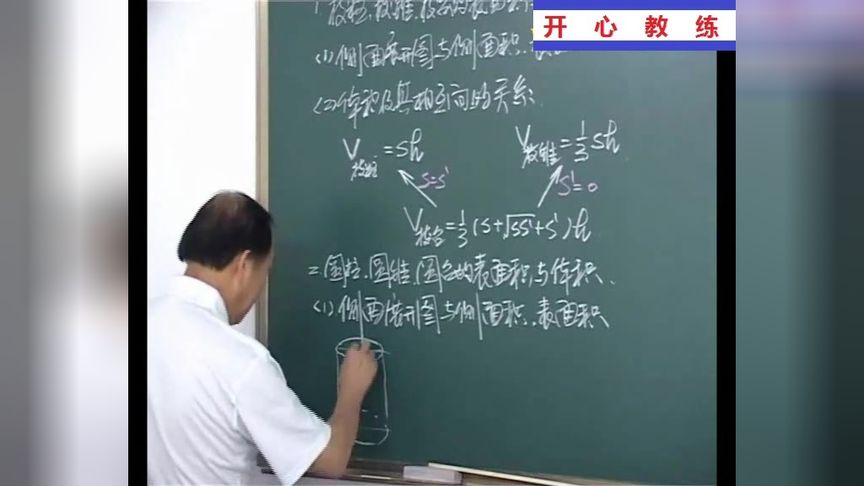 开心教练
1 棱柱、棱锥、棱台的表面积
(1) 侧面展开图与侧面积、表
(2) 体积及其相互间的关系:
V棱柱=Sh V棱锥=1/3 Sh
S=S' S'=0
V棱台=1/3(S+√SS'+S')h
二 圆柱、圆锥、圆台的表面积与体积、
(1) 侧面展开图与侧面积、表面积